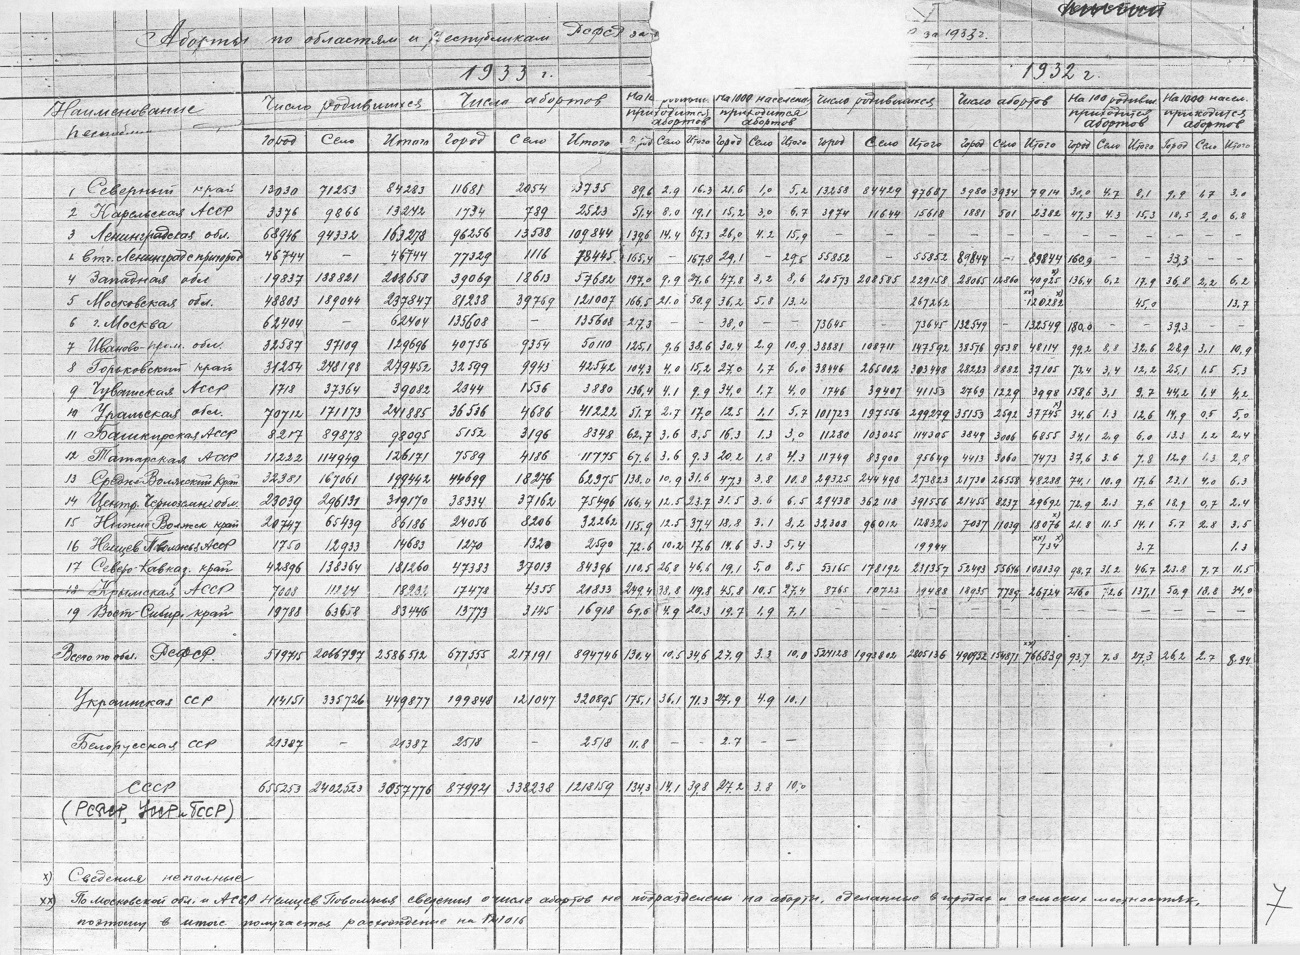 Аборты по областям и республикам РСФСР за
за 1933 г.
1933 г. 1932 г.
Наименование Число родившихся Число абортов На 100 родивш. приходится абортов На 1000 населен. приходится абортов Число родившихся Число абортов На 100 родивш. приходится абортов На 1000 насел. приходится абортов
Город Село Итого Город Село Итого Город Село Итого Город Село Итого Город Село Итого Город Село Итого Город Село Итого Город Село Итого
1 Северный край 13030 71253 84283 11681 2054 3735 89,6 2.9 16.3 21.6 1,0 5,2 13258 84429 97687 3980 3934 7914 30,0 4.7 8,1 9.9 1.7 3,0
2 Карельская АССР 3376 9866 13242 1734 789 2523 51,4 8.0 19,1 15,2 3,0 6.7 3974 11644 15618 1881 501 2382 47,3 4.3 15,3 18,5 2,0 6,8
3 Ленинградская обл. 68946 94332 163278 96256 13588 109844 139,6 14.4 67,3 26,0 4.2 15,9 – – – – – – – – – – – –
в т.ч. Ленинград с пригород 46744 – 46744 77329 1116 78445 165,4 – 167,8 29,1 – 29,5 55852 – 55852 89844 – 89844 160,9 33,3 – –
4 Западная обл 19837 188821 208658 39069 18613 57682 197,0 9.9 27,6 47,8 3,2 8,6 20573 208585 229158 28065 12860 40925 x) 136,4 6,2 17,9 36,8 2,2 6,2
5 Московская обл. 48803 189044 237847 81238 39769 121007 166,5 21.0 50,9 36,2 5,8 13.2 267262 xx) 120282 45,0 13,7
6 г. Москва 62404 – 62404 135608 – 135608 217,3 – – 38,0 – – 73645 – 73645 132549 – 132549 180,0 – – 39,3 – –
7 Иваново-пром. обл. 32587 97109 129696 40756 9354 50110 125,1 9,6 38,6 30,4 2.9 10,9 38881 108711 147592 38576 9538 48114 99,2 8,8 32,6 28,9 3,1 10,9
8 Горьковский край 31254 248198 279452 32599 9943 42542 104,3 4.0 15,2 27,0 1,7 6,0 38446 265002 303448 28223 8882 37105 72,4 3,4 12,2 25,1 1,5 5,3
9 Чувашская АССР 1718 37364 39082 2344 1536 3880 136,4 4,1 9,9 34,0 1,7 4,0 1746 39407 41153 2769 1229 3998 158,6 3,1 9,7 44,2 1,4 4,2
10 Уральская обл. 70712 171173 241885 36536 4686 41222 51,7 2.7 17,0 12,5 1,1 5,7 101723 197556 299279 35153 2592 37745 x) 34,6 1.3 12,6 14,9 0,5 5,0
11 Башкирская АССР 8217 89878 98095 5152 3196 8348 62,7 3,6 8,5 16,3 1,3 3,0 11280 103025 114305 3849 3006 6855 34,1 2,9 6,0 13,3 1,2 2,4
12 Татарская АССР 11222 114949 126171 7589 4186 11775 67,6 3,6 9,3 20,2 1,8 4,3 11749 83900 95649 4413 3060 7473 37,6 3,6 7,8 12,9 1,3 2,8
13 Средне-Волжский край 32381 167061 199442 44699 18276 62975 138,0 10,9 31,6 47,3 3.8 10.8 29325 244498 273823 21730 26558 48238 74,1 10,9 17,6 23,1 4,0 6,3
14 Центр. Чернозёмн. обл. 23039 296131 319170 38334 37162 75496 166,4 12,5 23,7 31,5 3.6 6,5 29438 362118 391556 21455 8237 29692 72,9 2,3 7,6 18,9 0,7 2,4
15 Нижне Волжск край 20747 65439 86186 24056 8206 32262 115,9 12.5 37,4 18,8 3.1 8,2 32308 96012 128320 7037 11039 18076 x) 21.8 11.5 14,1 5.7 2.8 3.5
16 Немцев Поволжья АССР 1750 12933 14683 1270 1320 2590 72.6 10,2 17,6 14.6 3.3 5,4 19944 xx) x) 734 3.7 1.3
17 Северо-Кавказ. край 42896 138364 181260 47383 37013 84396 110,5 26,8 46,6 19,1 5,0 8,5 53165 178192 231357 52493 55646 108139 98,7 31,2 46.7 23.8 7,7 11,5
18 Крымская АССР 7008 11224 18232 17478 4355 21833 249,4 38,8 119,8 45,8 10,5 27,4 8765 10723 19488 18935 7789 26724 216,0 72,6 137,1 50,9 18,8 34,0
19 Вост-Сибир. край 19788 63658 83446 13773 3145 16918 69,6 4,9 20,3 19,7 1,9 7,1 – – – – – – – – – – – –
Всего по обл. РСФСР. 519715 2066797 2586512 677555 217191 894746 130,4 10,5 34,6 27,9 3.3 10,0 524128 1993802 2805136 490952 154871 xx) 766839 93,7 7.8 27,3 26,2 2.7 8.94
Украинская ССР 114151 335726 449877 199848 121047 320895 175,1 36,1 71,3 27,9 4.9 10.1
Белорусская ССР 21387 – 21387 2518 – 2518 11.8 – – 2.7 – –
СССР 655253 2402523 3057776 879921 338238 1218159 134,3 14,1 39,8 27,2 3.8 10,0
(РСФСР, УССР и БССР)
x) Сведения неполные
xx) По Московской обл. и АССР Немцев Поволжья сведения о числе абортов не подразделены на аборты, сделанные в городах и сельских местностях,
поэтому в итоге получается расхождение на 121016
7